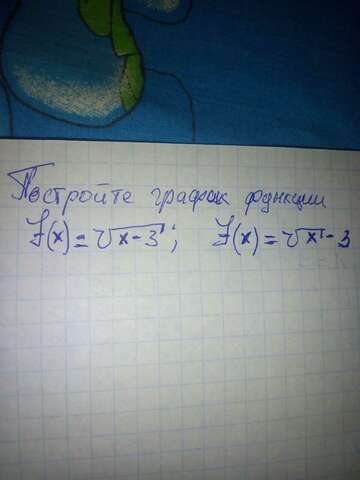 Постройте график функции
f(x) = √x-3; f(x) = √x - 3